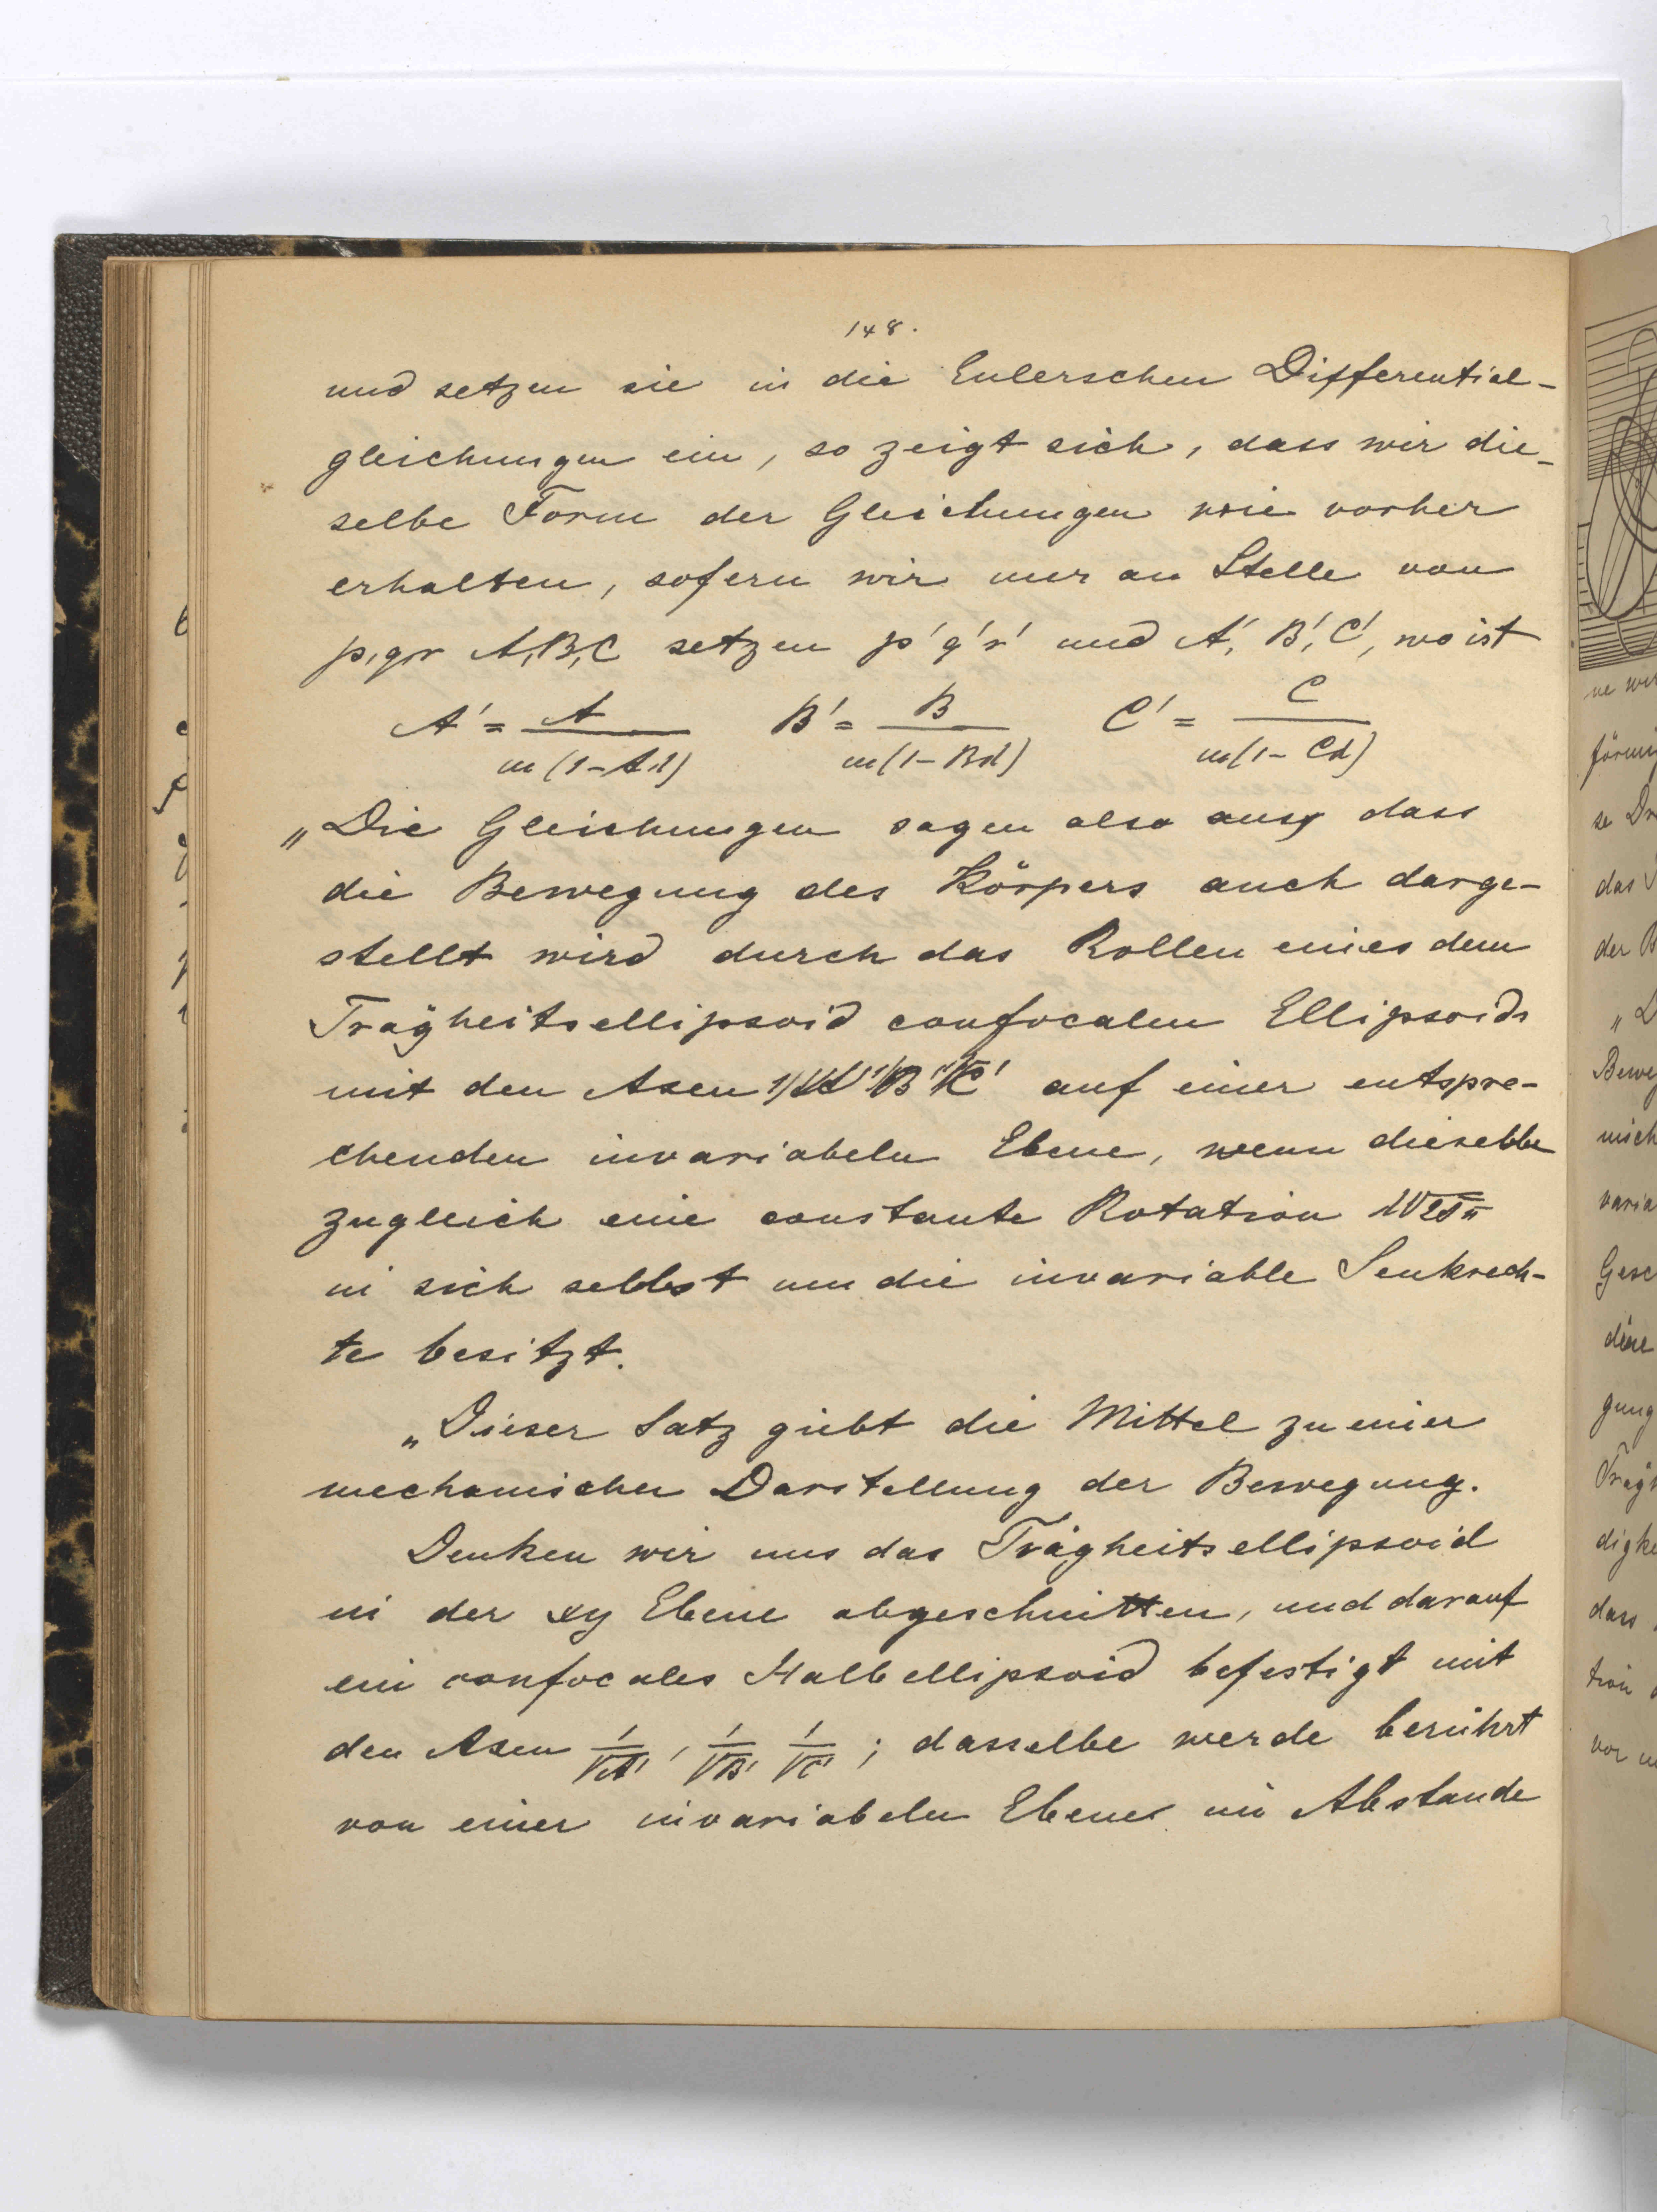 148.
und setzen sie in die Eulerschen Differential-
gleichungen ein, so zeigt sich, dass wir die-
selbe Form der Gleichungen wie vorher
erhalten, sofern wir nur an Stelle von
p,q,r A,B,C setzen p' q' r' und A', B', C', wo ist
A' = A / m(1-Aλ) B' = B / m(1-Bλ) C' = C / m(1-Cλ)
„Die Gleichungen sagen also aus, dass
die Bewegung des Körpers auch darge-
stellt wird durch das Rollen eines dem
Trägheitsellipsoid confocalen Ellipsoids
mit den Axen 1/√A' 1/√B' 1/√C' auf einer entspre-
chenden invariabeln Ebene, wenn dieselbe
zugleich eine constante Rotation
in sich selbst um die invariable Senkrech-
te besitzt.
„Dieser Satz giebt die Mittel zu einer
mechanischen Darstellung der Bewegung.
Denken wir uns das Trägheitsellipsoid
in der xy Ebene abgeschnitten, und darauf
ein confocales Halbellipsoid befestigt mit
den Axen 1/√A', 1/√B' 1/√C' ; dasselbe werde berührt
von einer invariabeln Ebene im Abstande